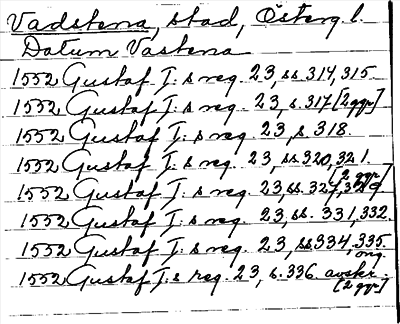 Vadstena, stad, Österg. l.
Datum Vastena
1552 Gustaf I:s reg. 23, ss. 314, 315.
1552 Gustaf I:s reg. 23, s. 317 [2 ggr]
1552 Gustaf I:s reg. 23, s. 318.
1552 Gustaf I:s reg. 23, ss. 320, 321.
1552 Gustaf I:s reg. 23, ss. 327, [2 ggr]
1552 Gustaf I:s reg. 23, ss. 331, 332.
1552 Gustaf I:s reg. 23, ss 334, 335 orig.
1552 Gustaf I:s reg. 23, s. 336 avskr. [2 ggr]